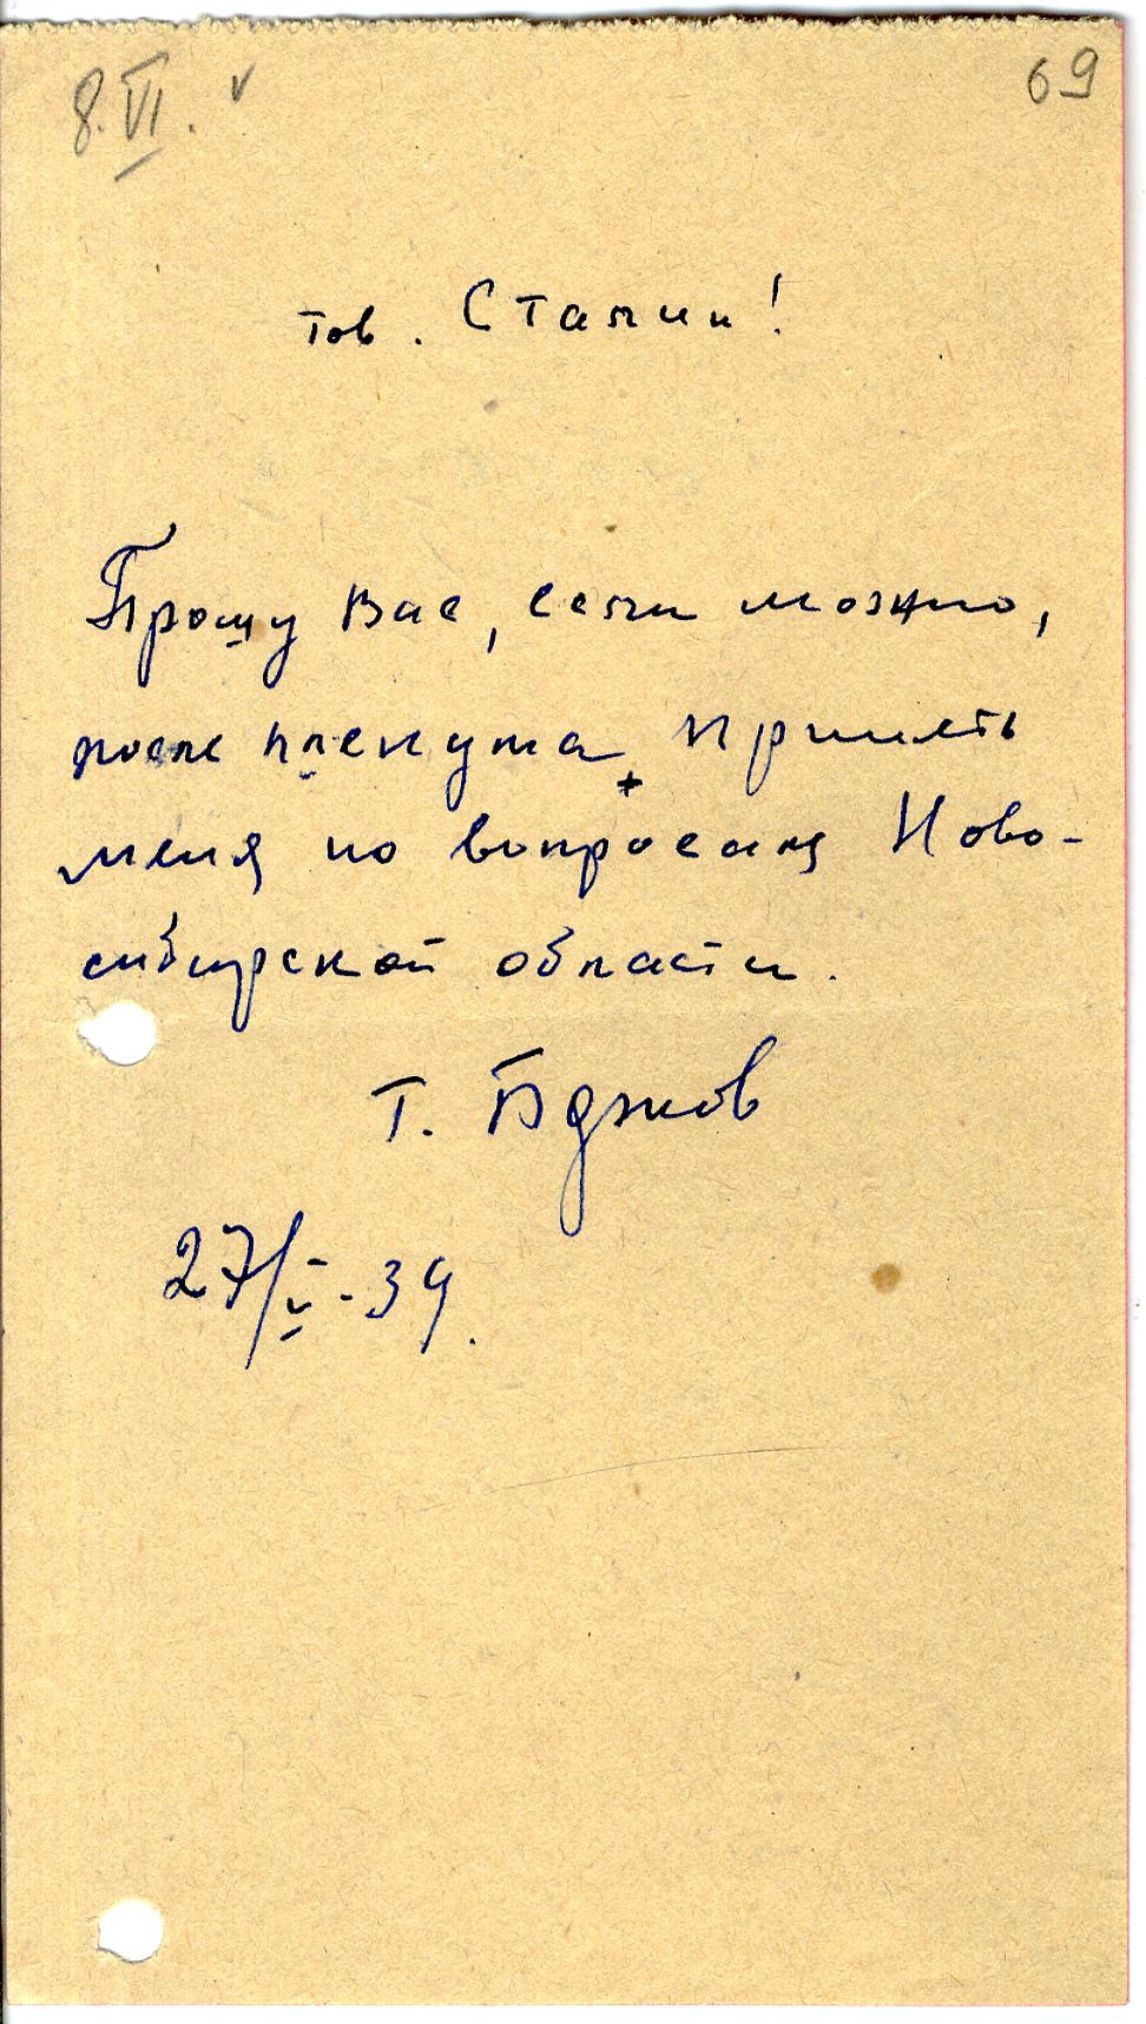 8.VI. v
69
тов. Сталин!
Прошу Вас, если можно,
после пленума, принять
меня по вопросам Ново-
сибирской области.
Г. Борков
27/V-39.